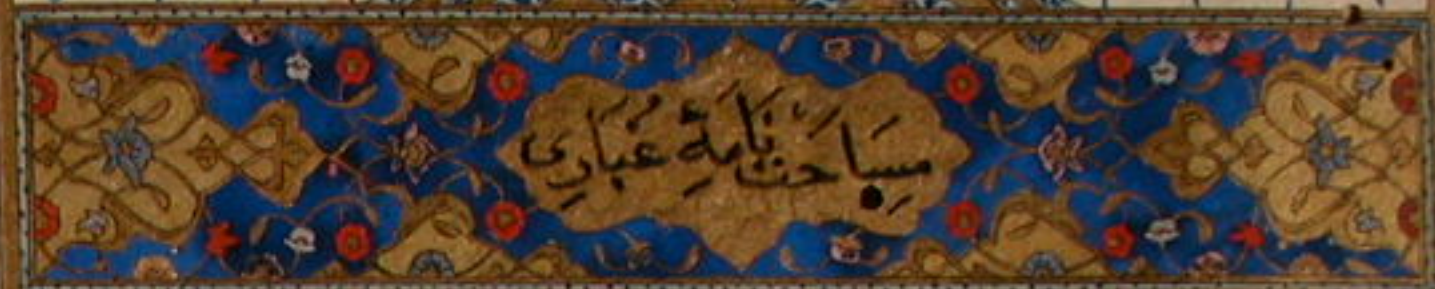 مِسَاحَت نَامَهِٔ غُبَارِي